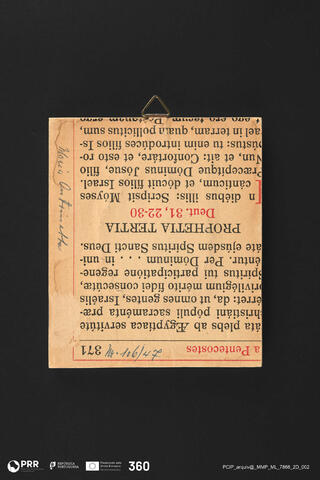 a Pentecostes 371
No. 106/47
áta plebs ab Ægyptíaca servitúte
hristiáni pópuli sacraménta præ-
érret: da, ut omnes gentes, Israélis
rivilégium mérito fídei consecútæ,
píritus tui participatióne regene-
éntur. Per Dóminum . . . in uni-
áte ejúsdem Spíritus Sancti Deus.
PROPHETIA TERTIA
Deut. 31, 22-30
n diébus illis: Scripsit Móyses
cánticum, et dócuit fílios Israel.
Præcepítque Dóminus Jósue, fílio
Nun, et ait: Confortáre, et esto ro-
bústus: tu enim introdúces fílios Is-
rael in terram, quam pollícitus sum,
ego ero tecum ergo
Marie Antoinette
PRR
REPÚBLICA
PORTUGUESA
360
PCIP_arquiv@_MMP_ML_7866_2D_002